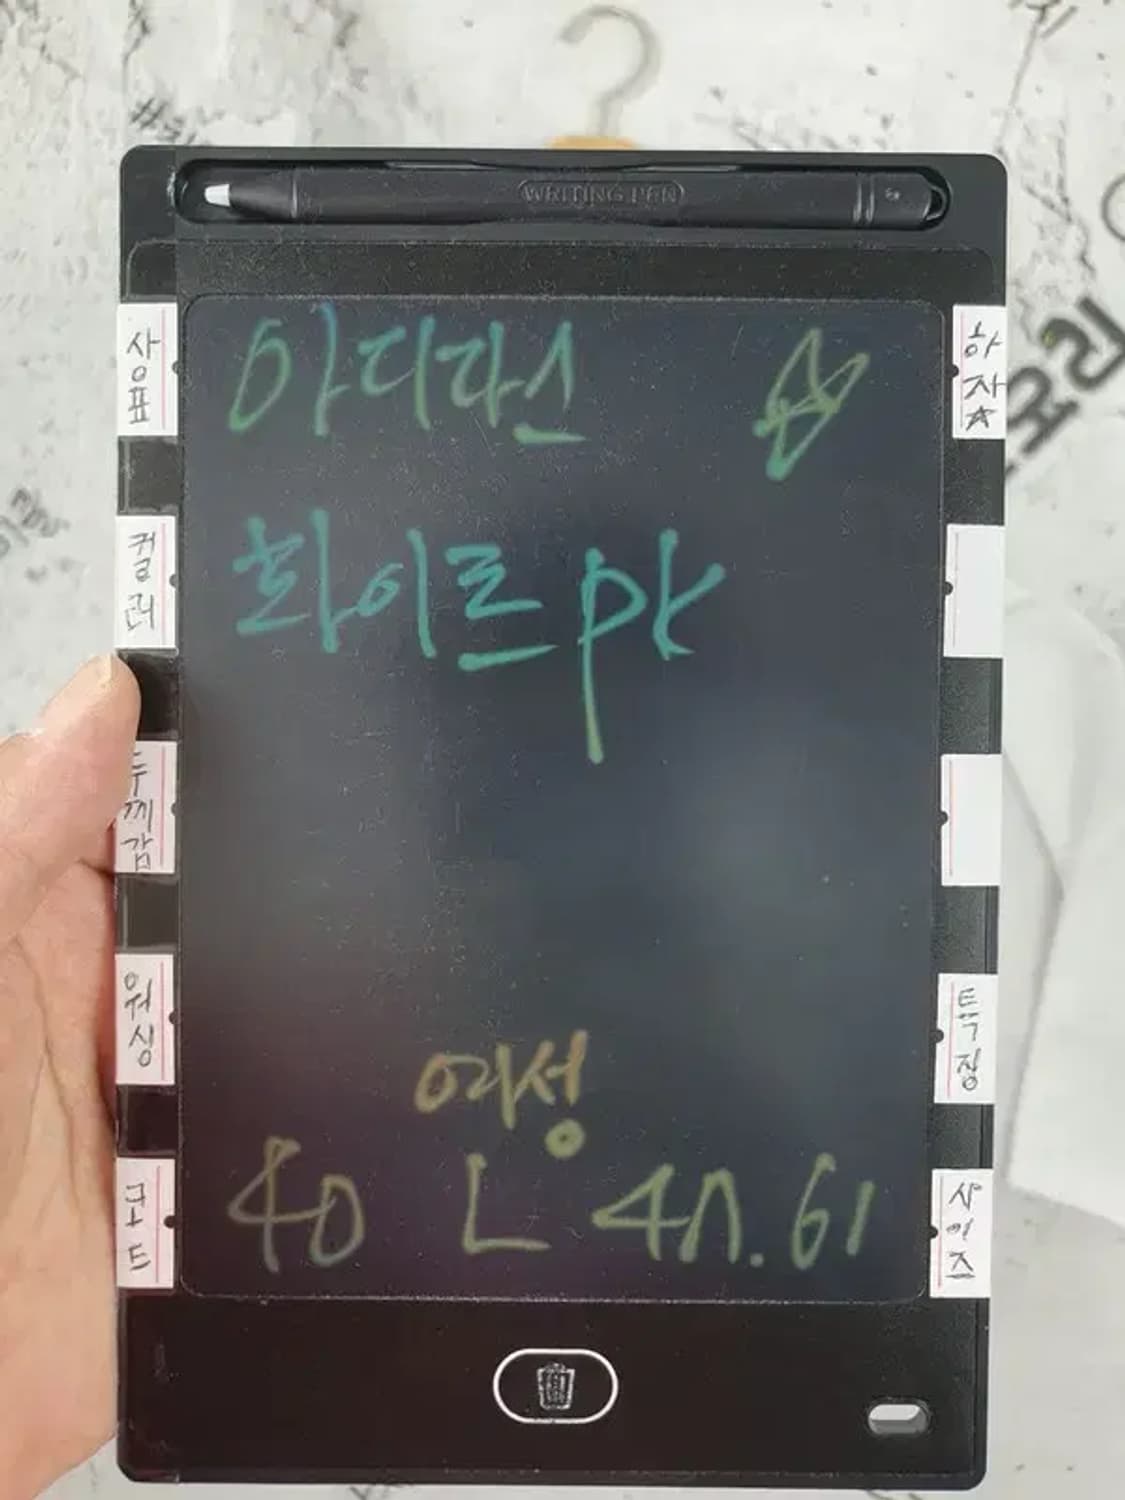 WRITING PEN
상표
아디다스 ☆
하자☆
컬러
화이트 pk
두께감
워싱
특징
여성
코드
40 L 47.61
사이즈